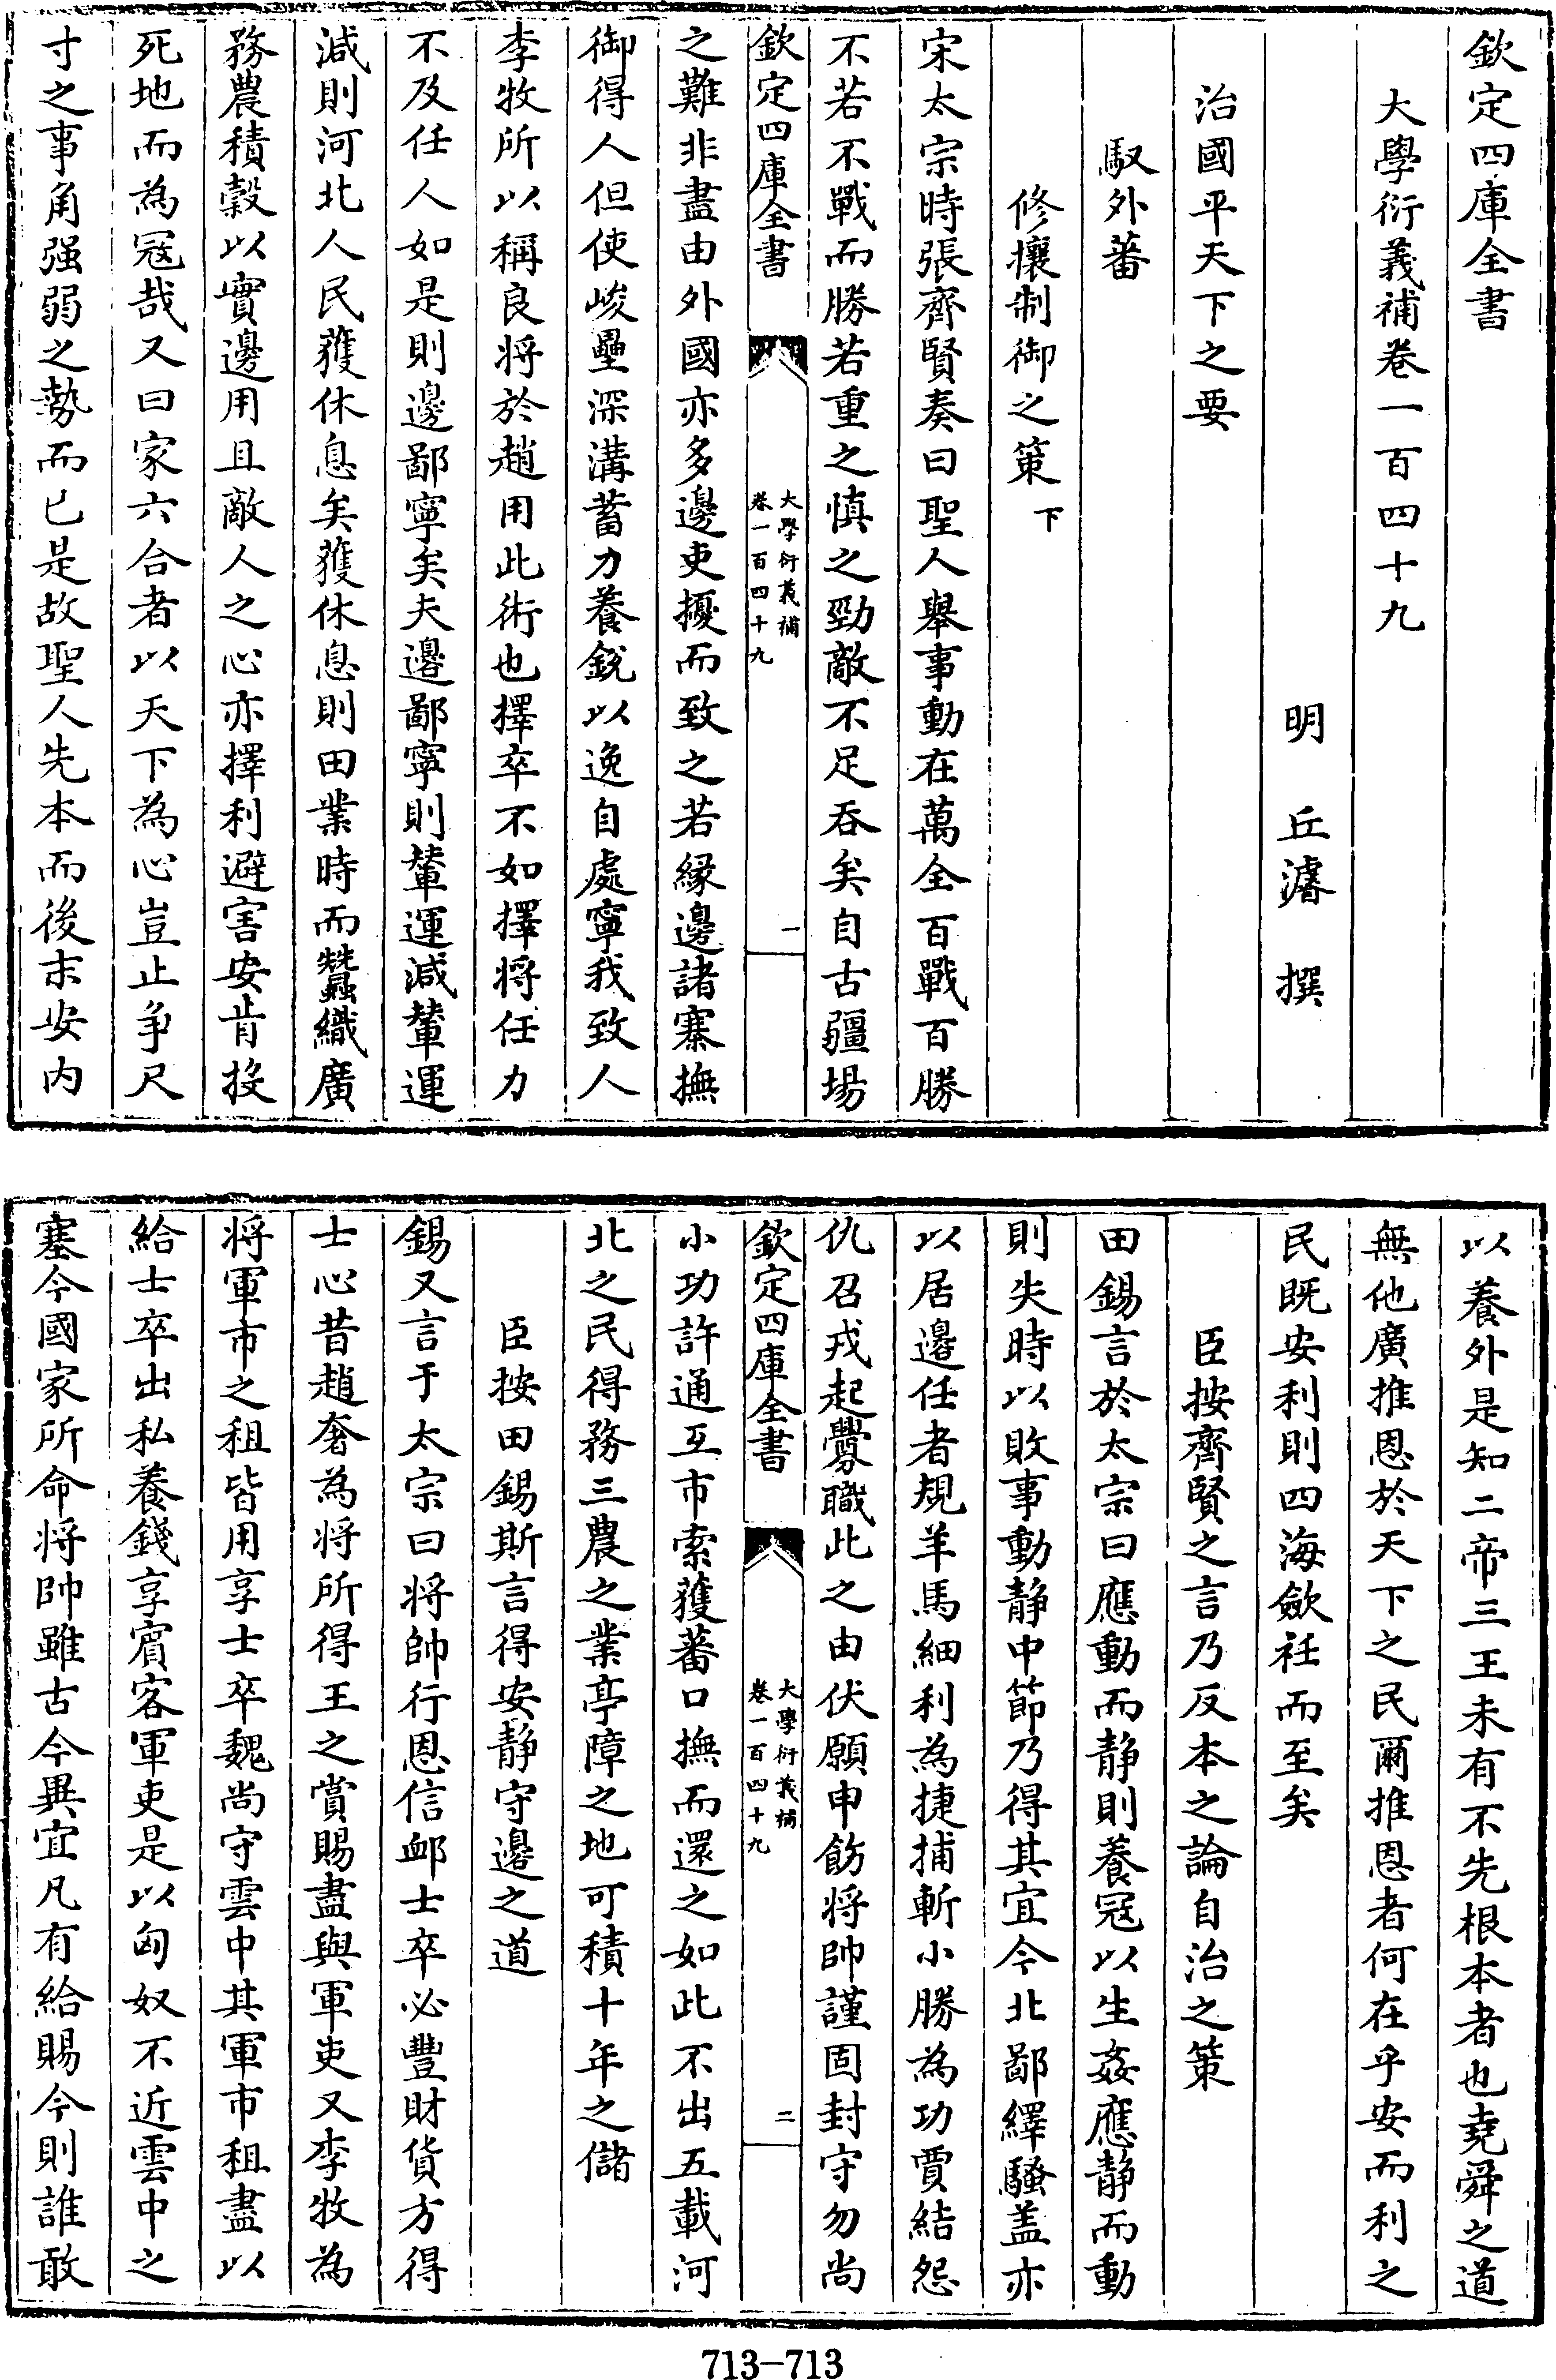 欽定四庫全書
大學衍義補卷一百四十九
明　丘濬　撰
治國平天下之要
馭外蕃
修攘制御之策下
宋太宗時張齊賢奏曰聖人舉事動在萬全百戰百勝
不若不戰而勝若重之慎之勁敵不足吞矣自古疆場
欽定四庫全書
大學衍義補
卷一百四十九
一
之難非盡由外國亦多邊吏擾而致之若縁邊諸寨撫
御得人但使峻壘深溝蓄力養銳以逸自處寧我致人
李牧所以稱良将於趙用此術也擇卒不如擇将任力
不及任人如是則邊鄙寧矣夫邊鄙寧則輦運減輦運
減則河北人民獲休息矣獲休息則田業時而蠶織廣
務農積穀以實邊用且敵人之心亦擇利避害安肯投
死地而為冦哉又曰家六合者以天下為心豈止争尺
寸之事角强弱之勢而已是故聖人先本而後末安内
以養外是知二帝三王未有不先根本者也堯舜之道
無他廣推恩於天下之民爾推恩者何在乎安而利之
民既安利則四海歛衽而至矣
臣按齊賢之言乃反本之論自治之策
田錫言於太宗曰應動而静則養冦以生姦應静而動
則失時以敗事動静中節乃得其宜今北鄙繹騷盖亦
以居邊任者規羊馬細利為捷捕斬小勝為功賈結怨
仇召戎起釁職此之由伏願申飭将帥謹固封守勿尚
欽定四庫全書
大學衍義補
卷一百四十九
二
小功許通互市索獲蕃口撫而還之如此不出五載河
北之民得務三農之業亭障之地可積十年之儲
臣按田錫斯言得安静守邊之道
錫又言于太宗曰将帥行恩信䘏士卒必豐財貨方得
士心昔趙奢為将所得王之賞賜盡與軍吏又李牧為
将軍市之租皆用享士卒魏尚守雲中其軍市租盡以
給士卒出私養錢享賓客軍吏是以匈奴不近雲中之
塞今國家所命将帥雖古今異宜凡有給賜今則誰敢
713-713